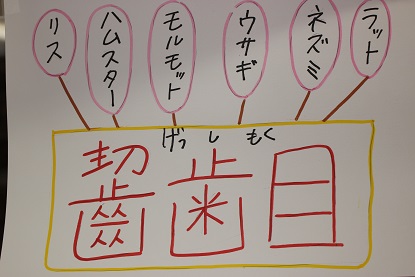 リス
ハムスター
モルモット
ウサギ
ネズミ
ラット
げっ し もく
齧歯目